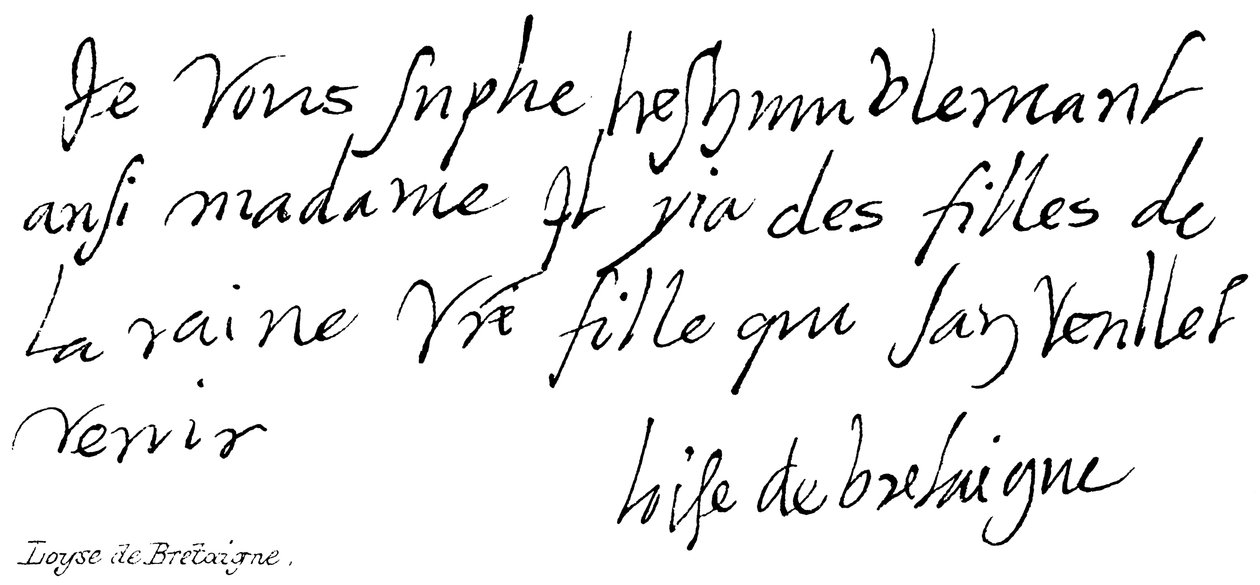 Je vous suplie treshumblemant
ansi madame Il ria des filles de
La raine vre fille qui san veullet
venir
loise de bretaigne
Loyse de Bretaigne.